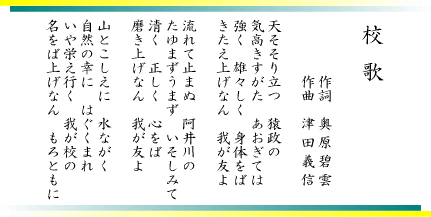 校歌
作詞 奥原碧雲
作曲 津田義信
天そそり立つ 猿政の
気高きすがた あおぎては
強く 雄々しく 身体をば
きたえ上げなん 我が友よ
流れて止まぬ 阿井川の
たゆまずうまず いそしみて
清く 正しく 心をば
磨き上げなん 我が友よ
山とこしえに 水ながく
自然の幸に はぐくまれ
いや栄え行く 我が校の
名をば上げなん もろともに